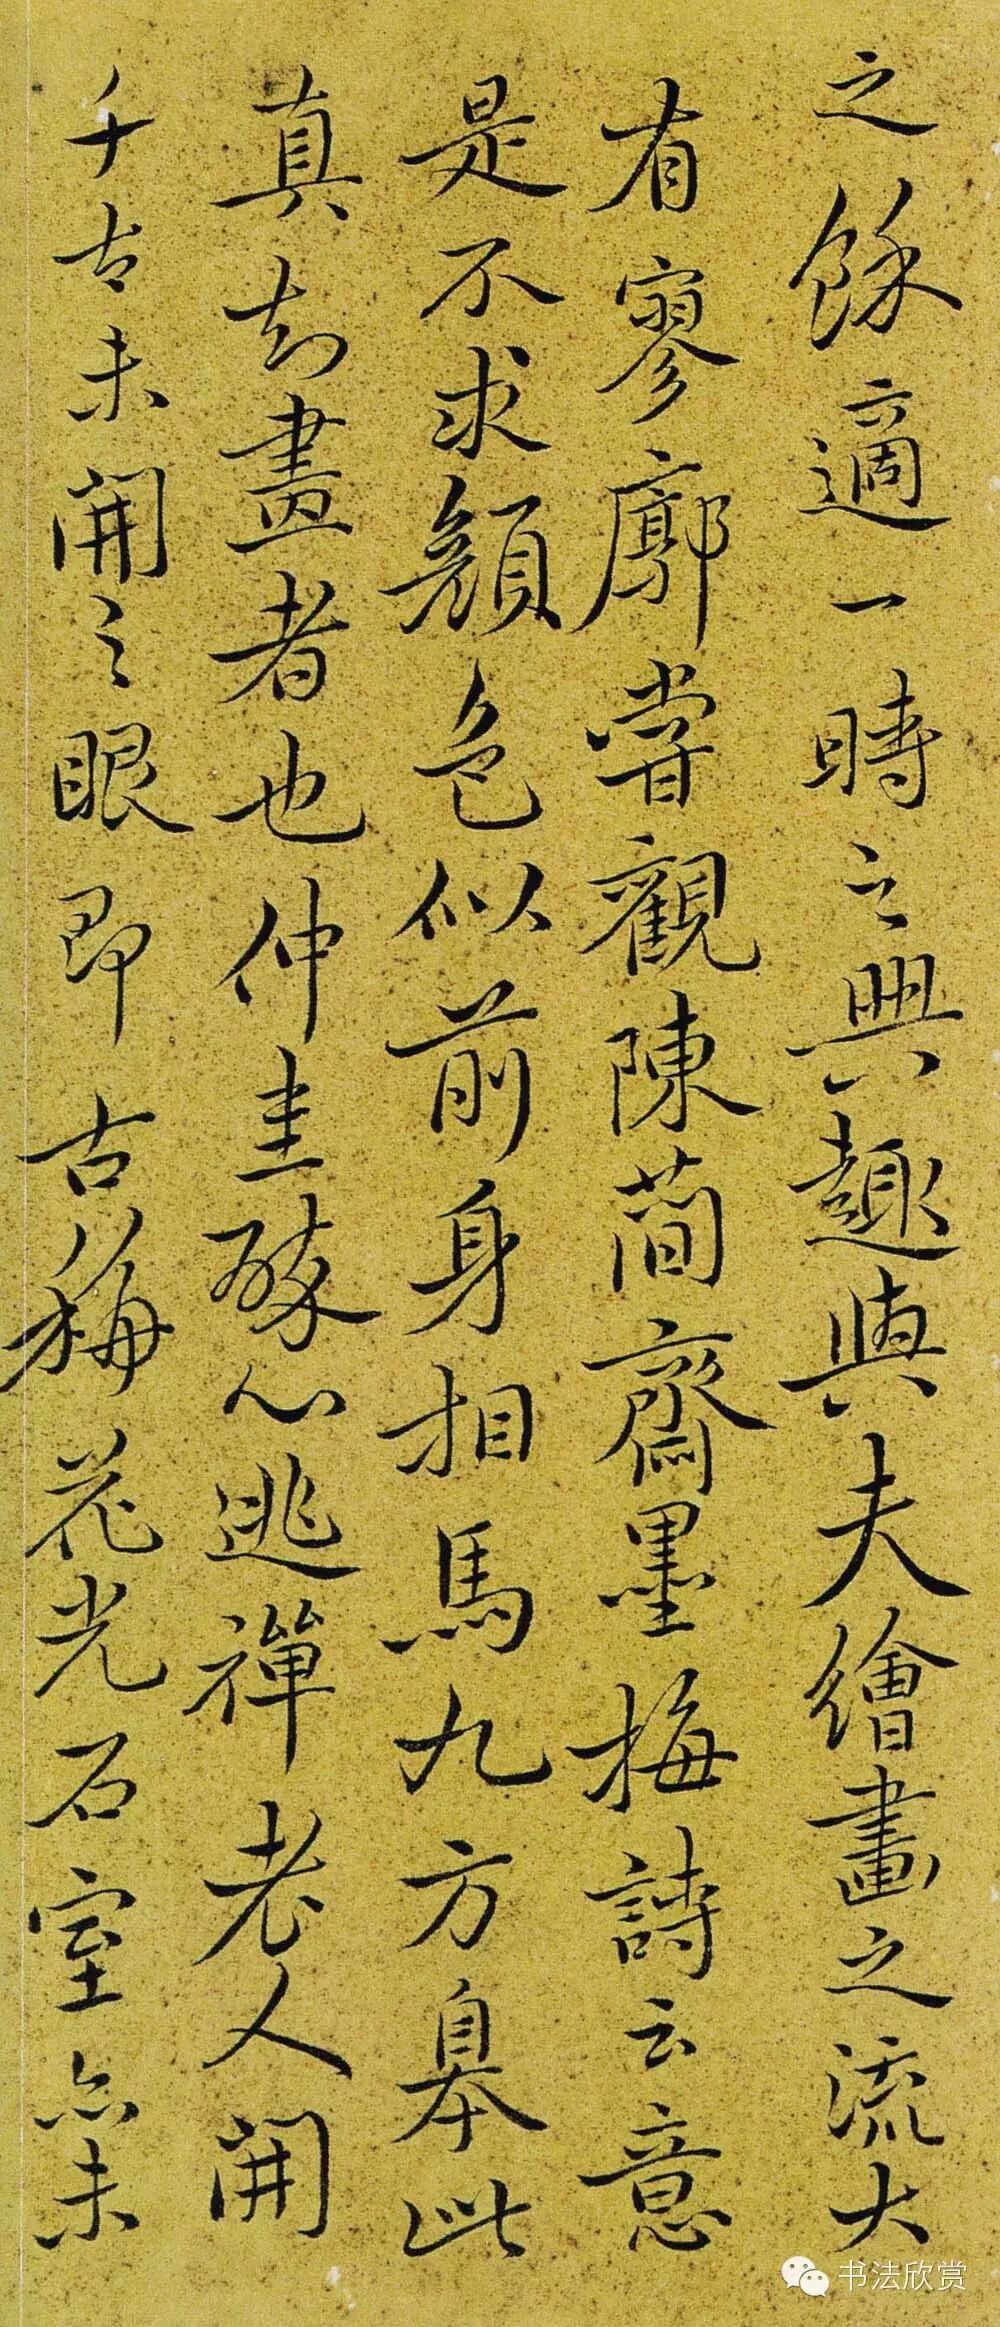 之餘適一時之興趣與夫繪畫之流大
有寥廓嘗觀陳簡齋墨梅詩云意
是不求顏色似前身相馬九方臯此
真知畫者也仲圭於心逃禪老人開
千古未開之眼即古梅花光石室亦未
书法欣赏